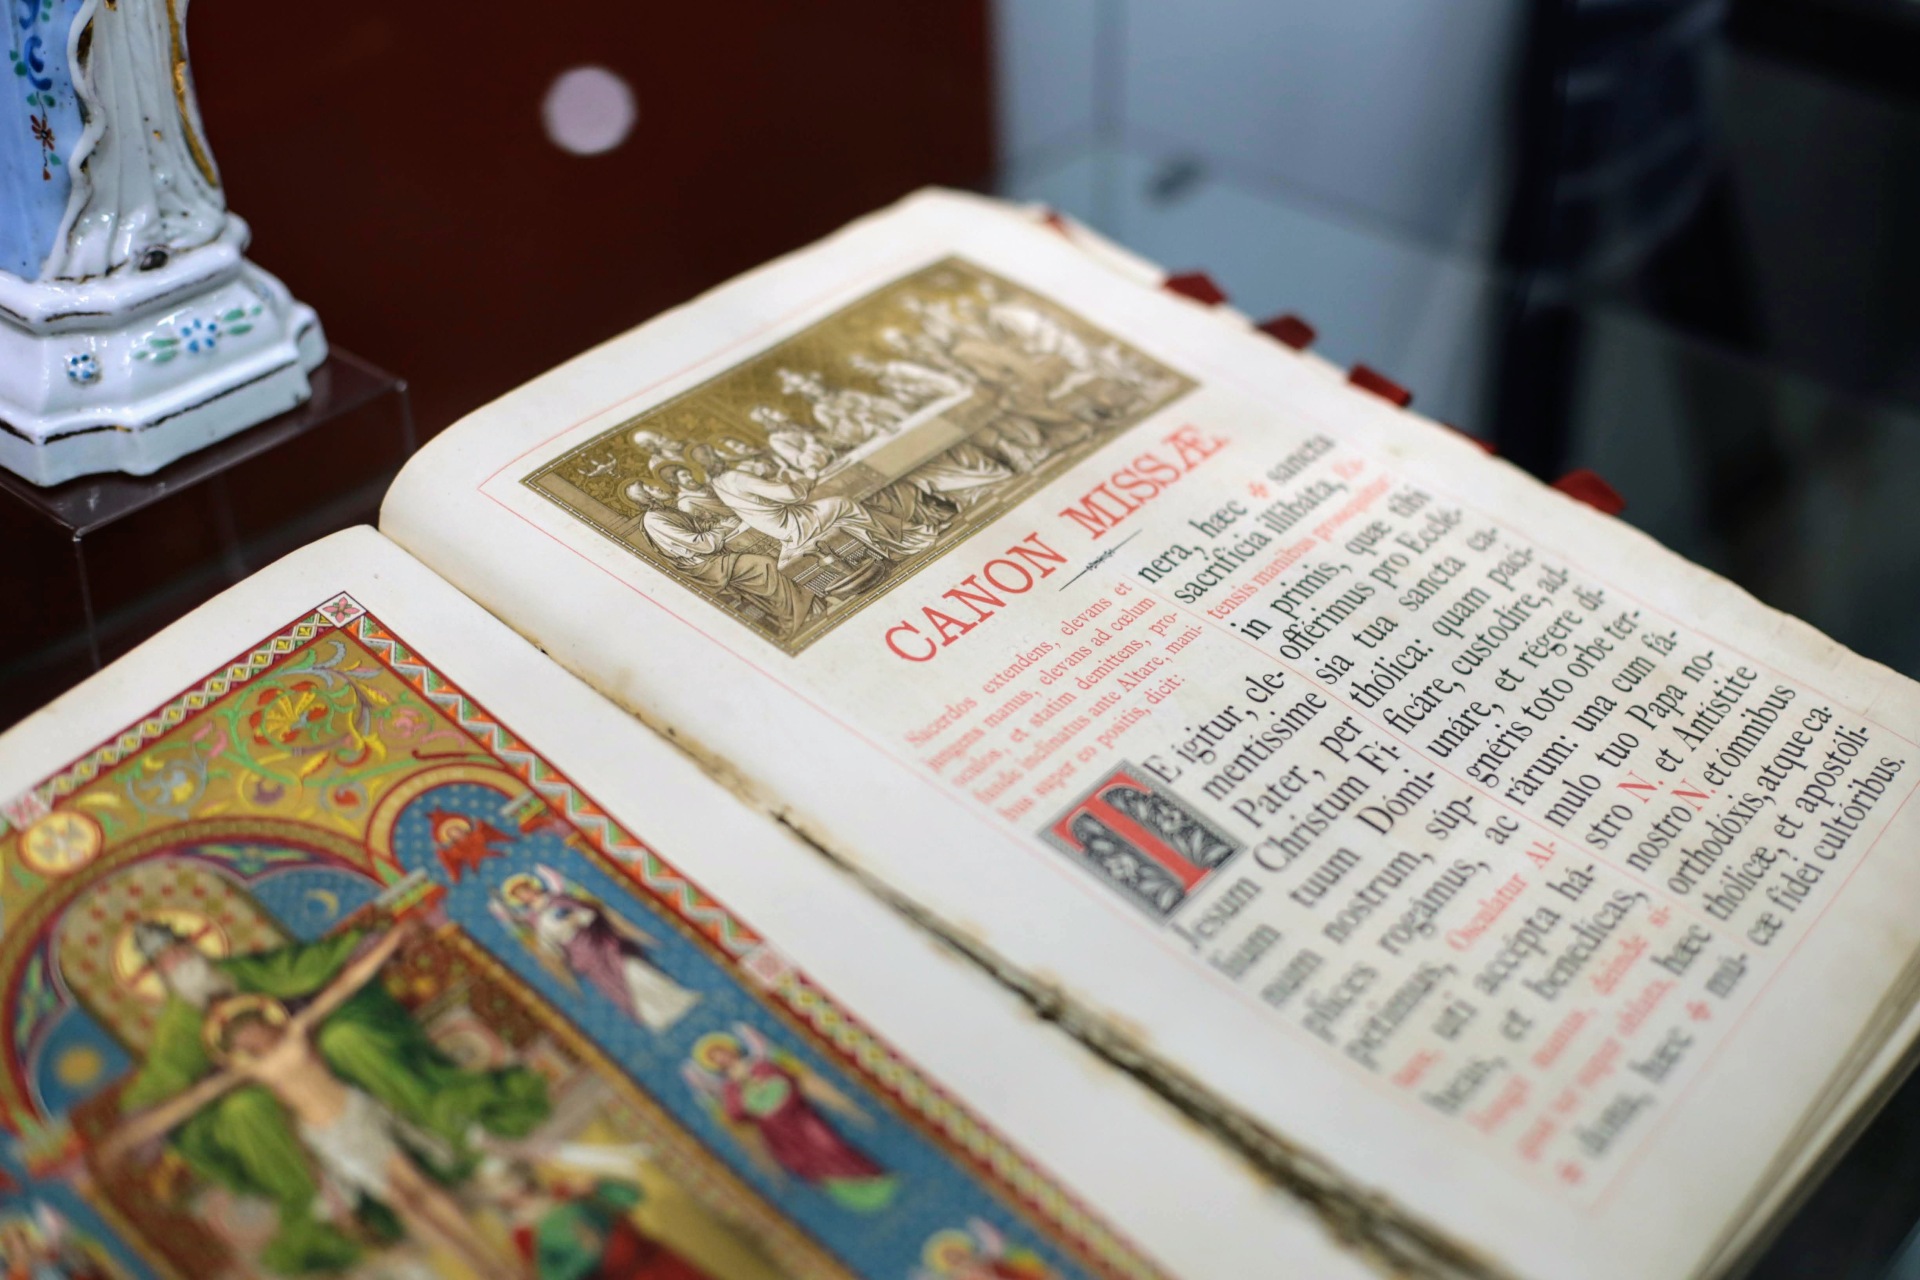 CANON MISSÆ
Sacerdos extendens, elevans et
jungens manus, elevans ad cœlum
oculos, et statim demittens, pro-
funde inclinatus ante Altare, mani-
bus super eo positis, dicit:
TE igitur, cle-
mentíssime
Pater, per
Jesum Christum Fí-
lium tuum Dómi-
num nostrum, súp-
plices rogámus, ac
pétimus, Osculatur Al-
tare, uti accépta há-
beas, et benedícas,
Jungit manus, deinde si-
gnat ter super oblata, hæc
✠ dona, hæc ✠ mú-
nera, hæc ✠ sancta
sacrifícia illibáta,
tensis manibus prosequitur:
in primis, quæ tibi
offérimus pro Ecclé-
sia tua sancta ca-
thólica: quam paci-
ficáre, custodíre, ad-
unáre, et régere di-
gnéris toto orbe ter-
rárum: una cum fá-
mulo tuo Papa no-
stro N. et Antístite
nostro N. et ómnibus
orthodóxis, atque ca-
thólicæ, et apostóli-
cæ fídei cultóribus.